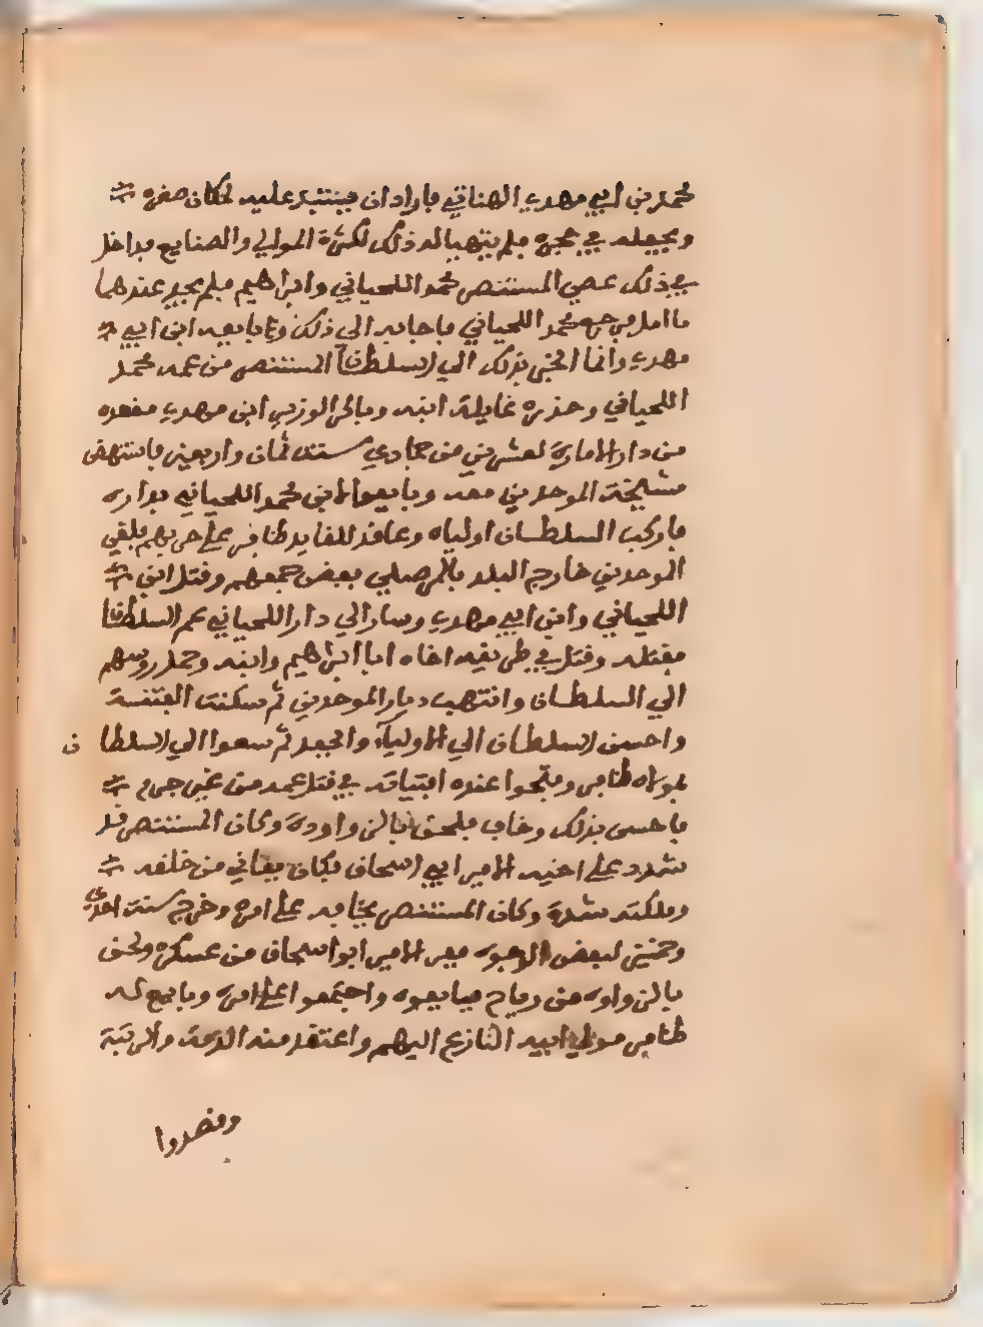 محمد بن أبي مهدي الهنتاتي فأراد ان يستبد عليه لمكان صغره
ويجعله في حجره فلم يتهيا له ذلك لكثرة الموالي والصنايع فداخل
في ذلك عمي المستنصر محمد اللحياني وابراهيم فلم يجد عندهما
ما امل محمد اللحياني فاجابه الي ذلك وبايعه ابن ابي
مهدي وانما الخبر بذلك الي السلطان المستنصر من عمه محمد
اللحياني وحذره غايلة ابنه وباكر الوزير ابن مهدي مقعده
من دار الامارة لعشرين من جمادي سنة ثمان واربعين فاستنهض
مشيخة الموحدين معه وبايعوا لابن محمد اللحياني بداره
فاركب السلطان اولياه وعاقد للقايد ظافر علي حربهم فلقي
الموحدين خارج البلد بالمرصلي بعض جمعهم وقتل ابن
اللحياني وابن ابي مهدي وسار الي دار اللحياني عم السلطان
فقتله وقتل في طريقه اخاه ابا ابراهيم وابنه وحمل روسهم
الي السلطان وانتهب ديار الموحدين ثم سكنت الفتنة
واحسن السلطان الي الاولياء والجند ثم سعوا الي السلطان
بمولاه ظافر وقبحوا عنده افتياته في قتل عمه من غير جرم
فاحس بذلك وخاف فلحق بالزواودة وكان المستنصر قد
شدد علي اخيه الامير ابي اسحاق فكان يعاني من خلفه
وملكته شدة وكان المستنصر يخافه علي امره وخرج سنة احدي
وخمسين لبعض الوجوه ففر الامير ابو اسحاق من عسكره ولحق
بالزواوده من رياح فبايعوه واجتمعوا علي امره وبايع له
ظافر مولي ابيه النازع اليهم واعتقد منه الذمة والرتبة
وقصدوا